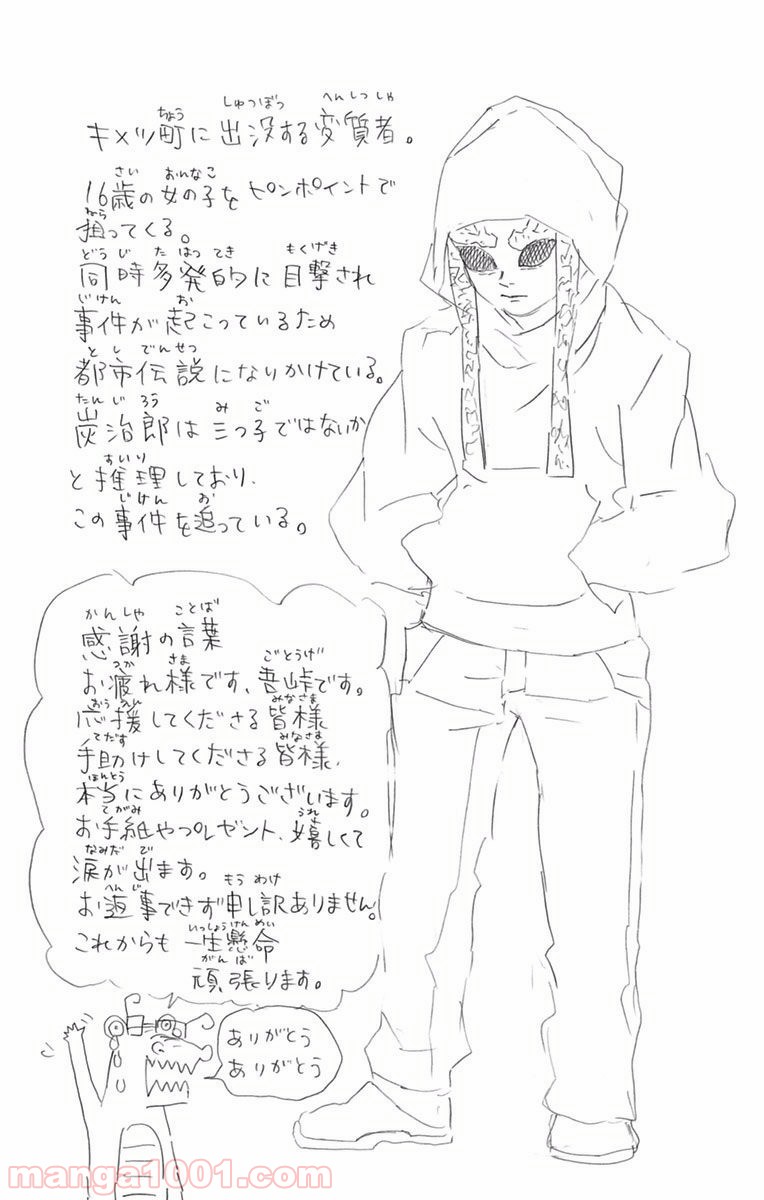 キメツ町に出没する変質者。
16歳の女の子をピンポイントで
狙ってくる。
同時多発的に目撃され
事件が起こっているため
都市伝説になりかけている。
炭治郎は三つ子ではないか
と推理しており、
この事件を追っている。
感謝の言葉
お疲れ様です、吾峠です。
応援してくださる皆様
手助けしてくださる皆様、
本当にありがとうございます。
お手紙やプレゼント、嬉しくて
涙が出ます。
お返事できず申し訳ありません。
これからも一生懸命
頑張ります。
ありがとう
ありがとう
manga1001.com